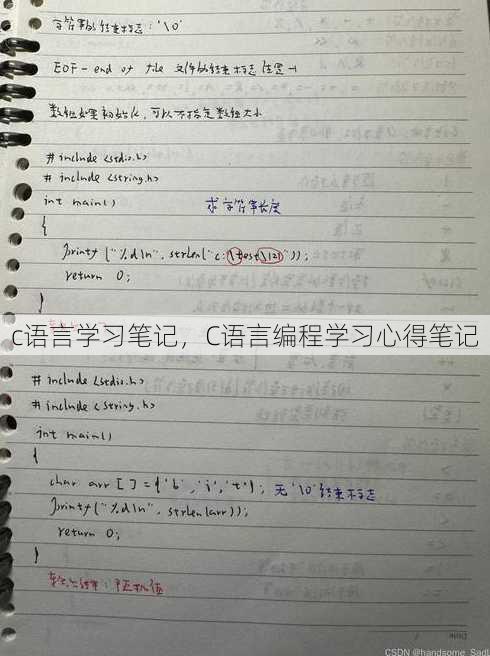 字符串的结束标志：'\0'
EOF - end of file 文件的结束标志 位置 -1
数组如果初始化，可以不指定数组大小
#include <stdio.h>
#include <string.h>
int main()
求字符串长度
{
printf("%d\n", strlen("c:\test\121"));
return 0;
}
c语言学习笔记，C语言编程学习心得笔记
#include <stdio.h>
#include <string.h>
int main()
{
char arr[] = {'b', 'i', 't'}; 无'\0'结束标志
printf("%d\n", strlen(arr));
return 0;
}
输出结果：随机值
Date
CSDN @handsome_Sadl